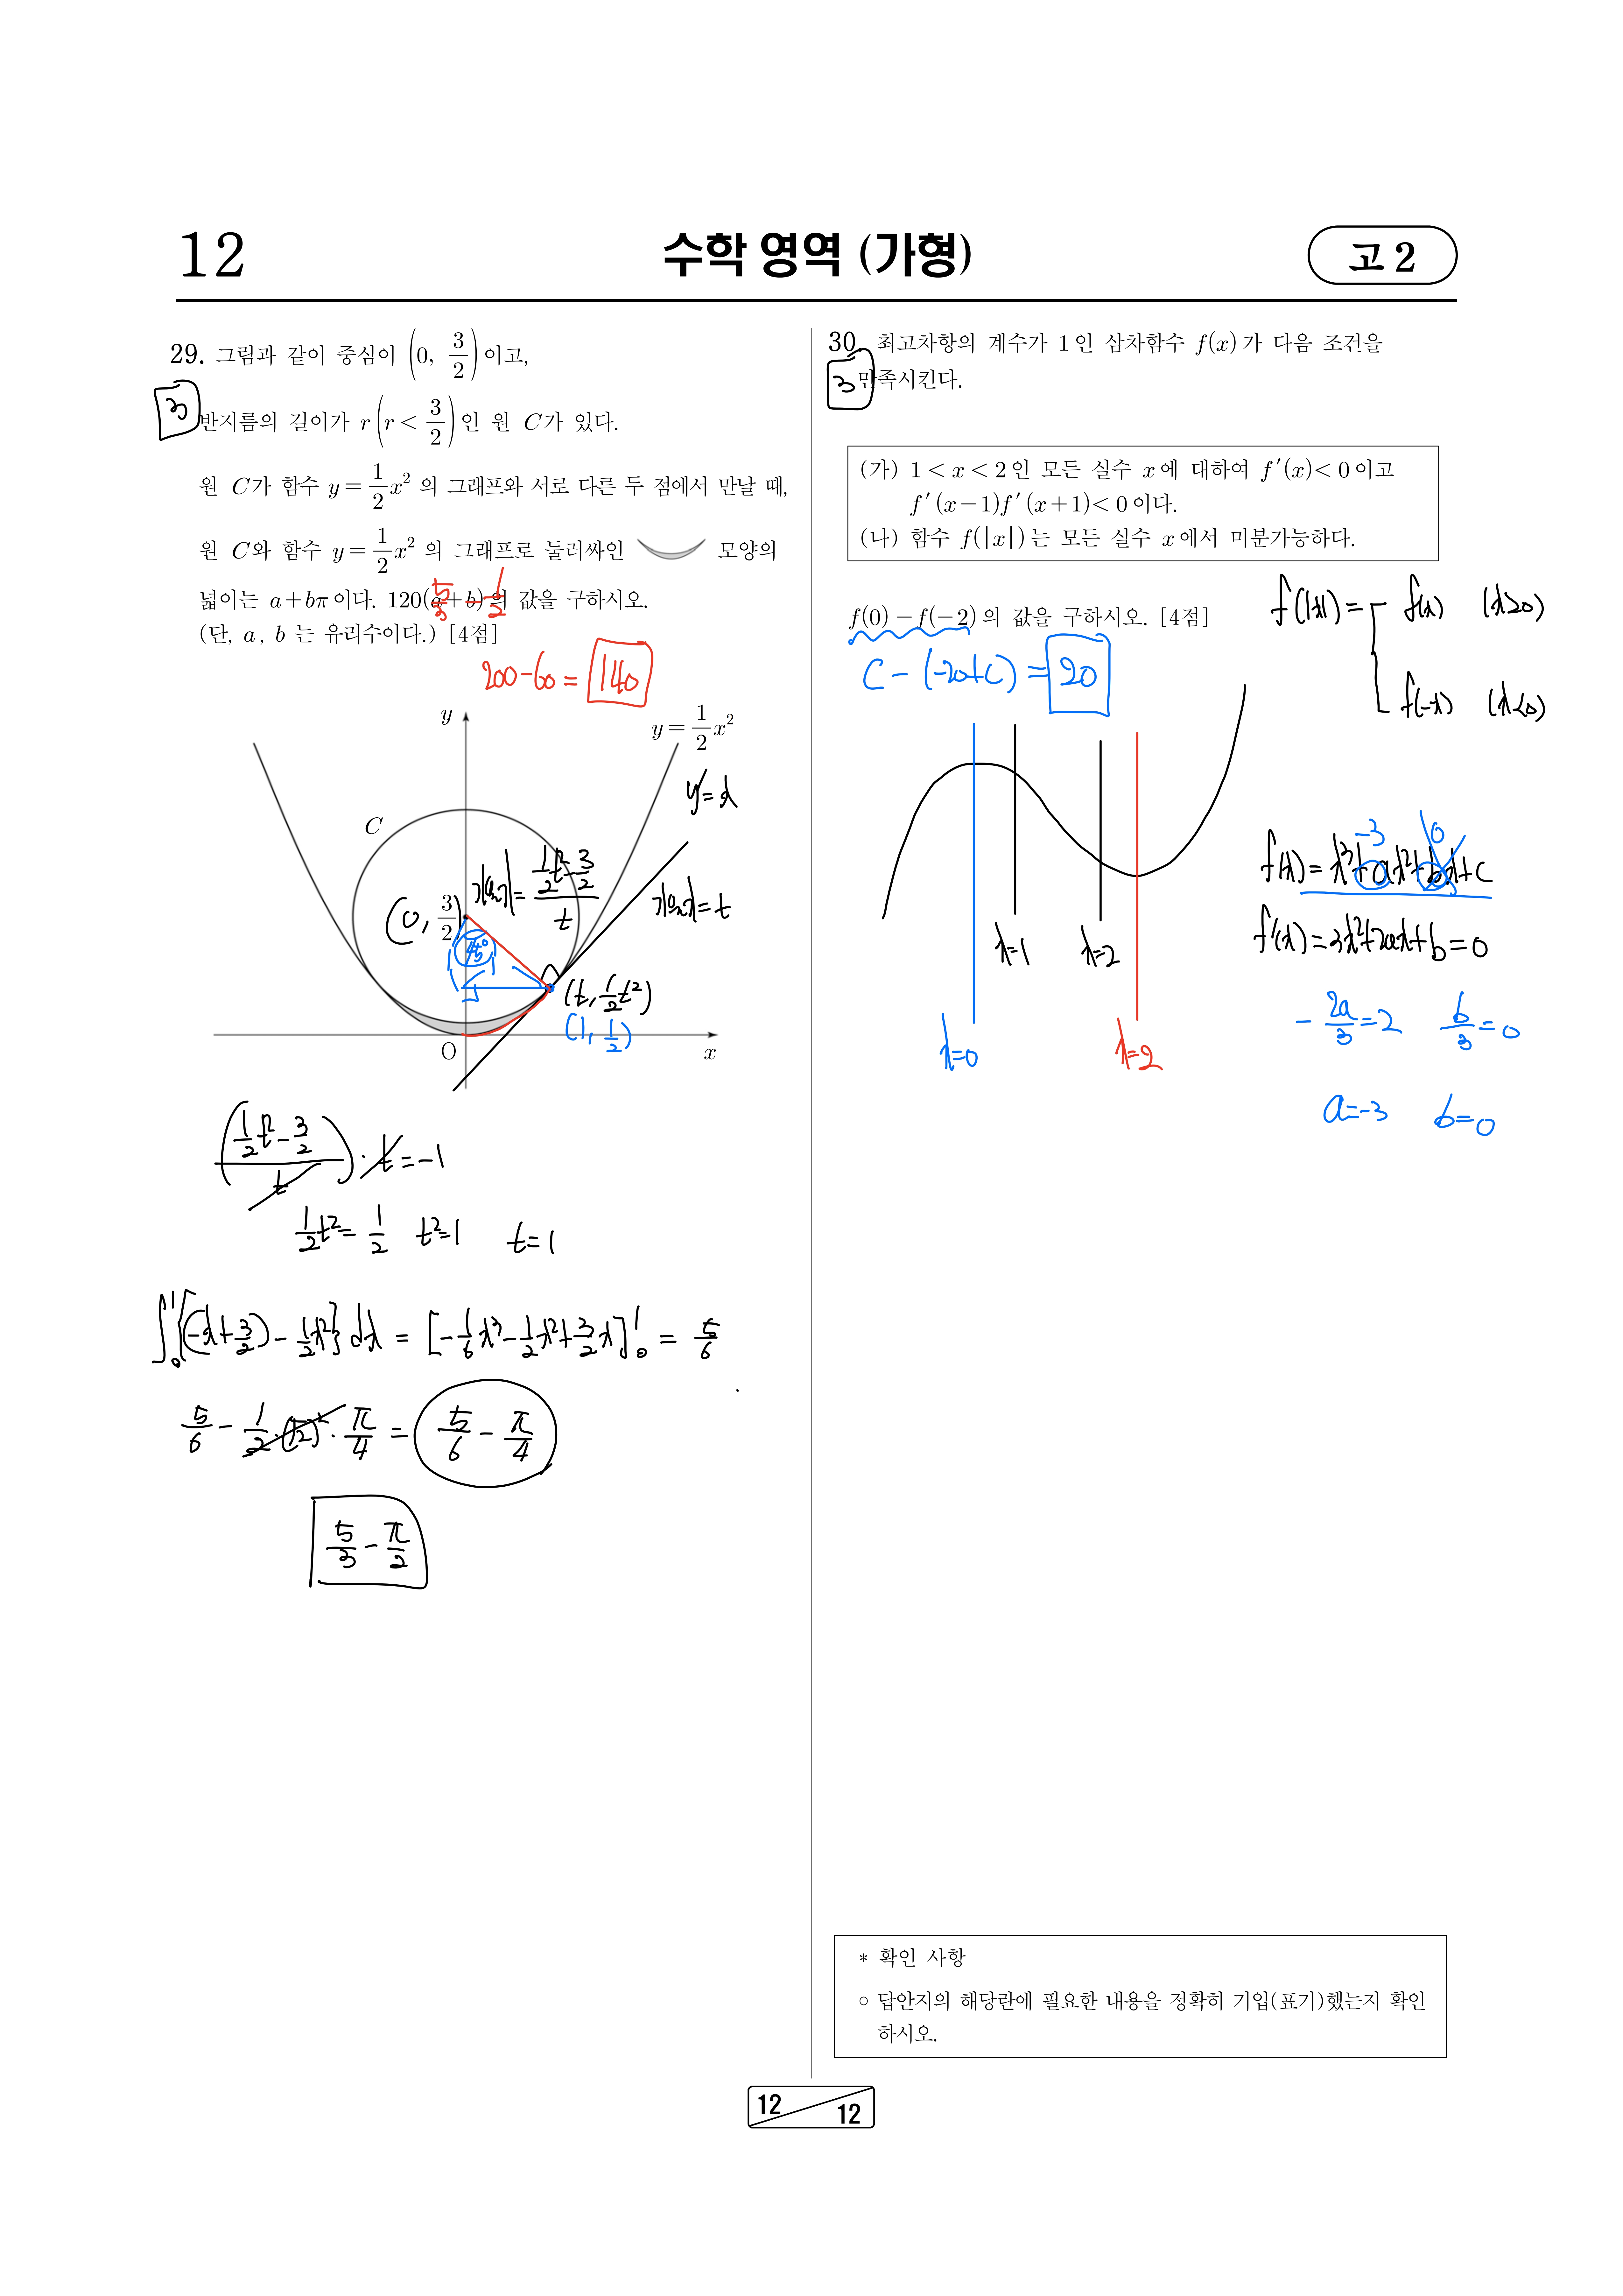 12
수학 영역 (가형)
고 2
29. 그림과 같이 중심이 (0, 3/2) 이고,
3
반지름의 길이가 r (r < 3/2) 인 원 C가 있다.
원 C가 함수 y = 1/2 x² 의 그래프와 서로 다른 두 점에서 만날 때,
원 C와 함수 y = 1/2 x² 의 그래프로 둘러싸인 모양의
넓이는 a+bπ이다. 120(a+b)의 값을 구하시오.
5/3 - 1/2
(단, a, b 는 유리수이다.) [4점]
200-60 = 140
y
y = 1/2 x²
y' = x
C
기울기 = (1/2 t² - 3/2) / t
기울기 = t
(0, 3/2)
45°
1
1
(t, 1/2 t²)
(1, 1/2)
O
x
((1/2 t² - 3/2) / t) · t = -1
1/2 t² = 1/2 t² = 1 t = 1
∫₀¹ {(-x + 3/2) - 1/2 x²} dx = [-1/6 x³ - 1/2 x² + 3/2 x]₀¹ = 5/6
5/6 - 1/2 · (√2)² · π/4 = 5/6 - π/4
5/3 - π/2
30. 최고차항의 계수가 1인 삼차함수 f(x)가 다음 조건을
3
만족시킨다.
(가) 1 < x < 2인 모든 실수 x에 대하여 f′(x) < 0이고
f′(x-1)f′(x+1) < 0이다.
(나) 함수 f(|x|)는 모든 실수 x에서 미분가능하다.
f(0)-f(-2)의 값을 구하시오. [4점]
C - (-20+C) = 20
f(|x|) = f(x) (x≥0)
f(-x) (x<0)
x=1
x=2
x=0
x=2
-3 0
f(x) = x³+ax²+bx+c
f'(x) = 3x²+2ax+b=0
-2a/3 = 2 b/3 = 0
a=-3 b=0
* 확인 사항
○ 답안지의 해당란에 필요한 내용을 정확히 기입(표기)했는지 확인
하시오.
12
12